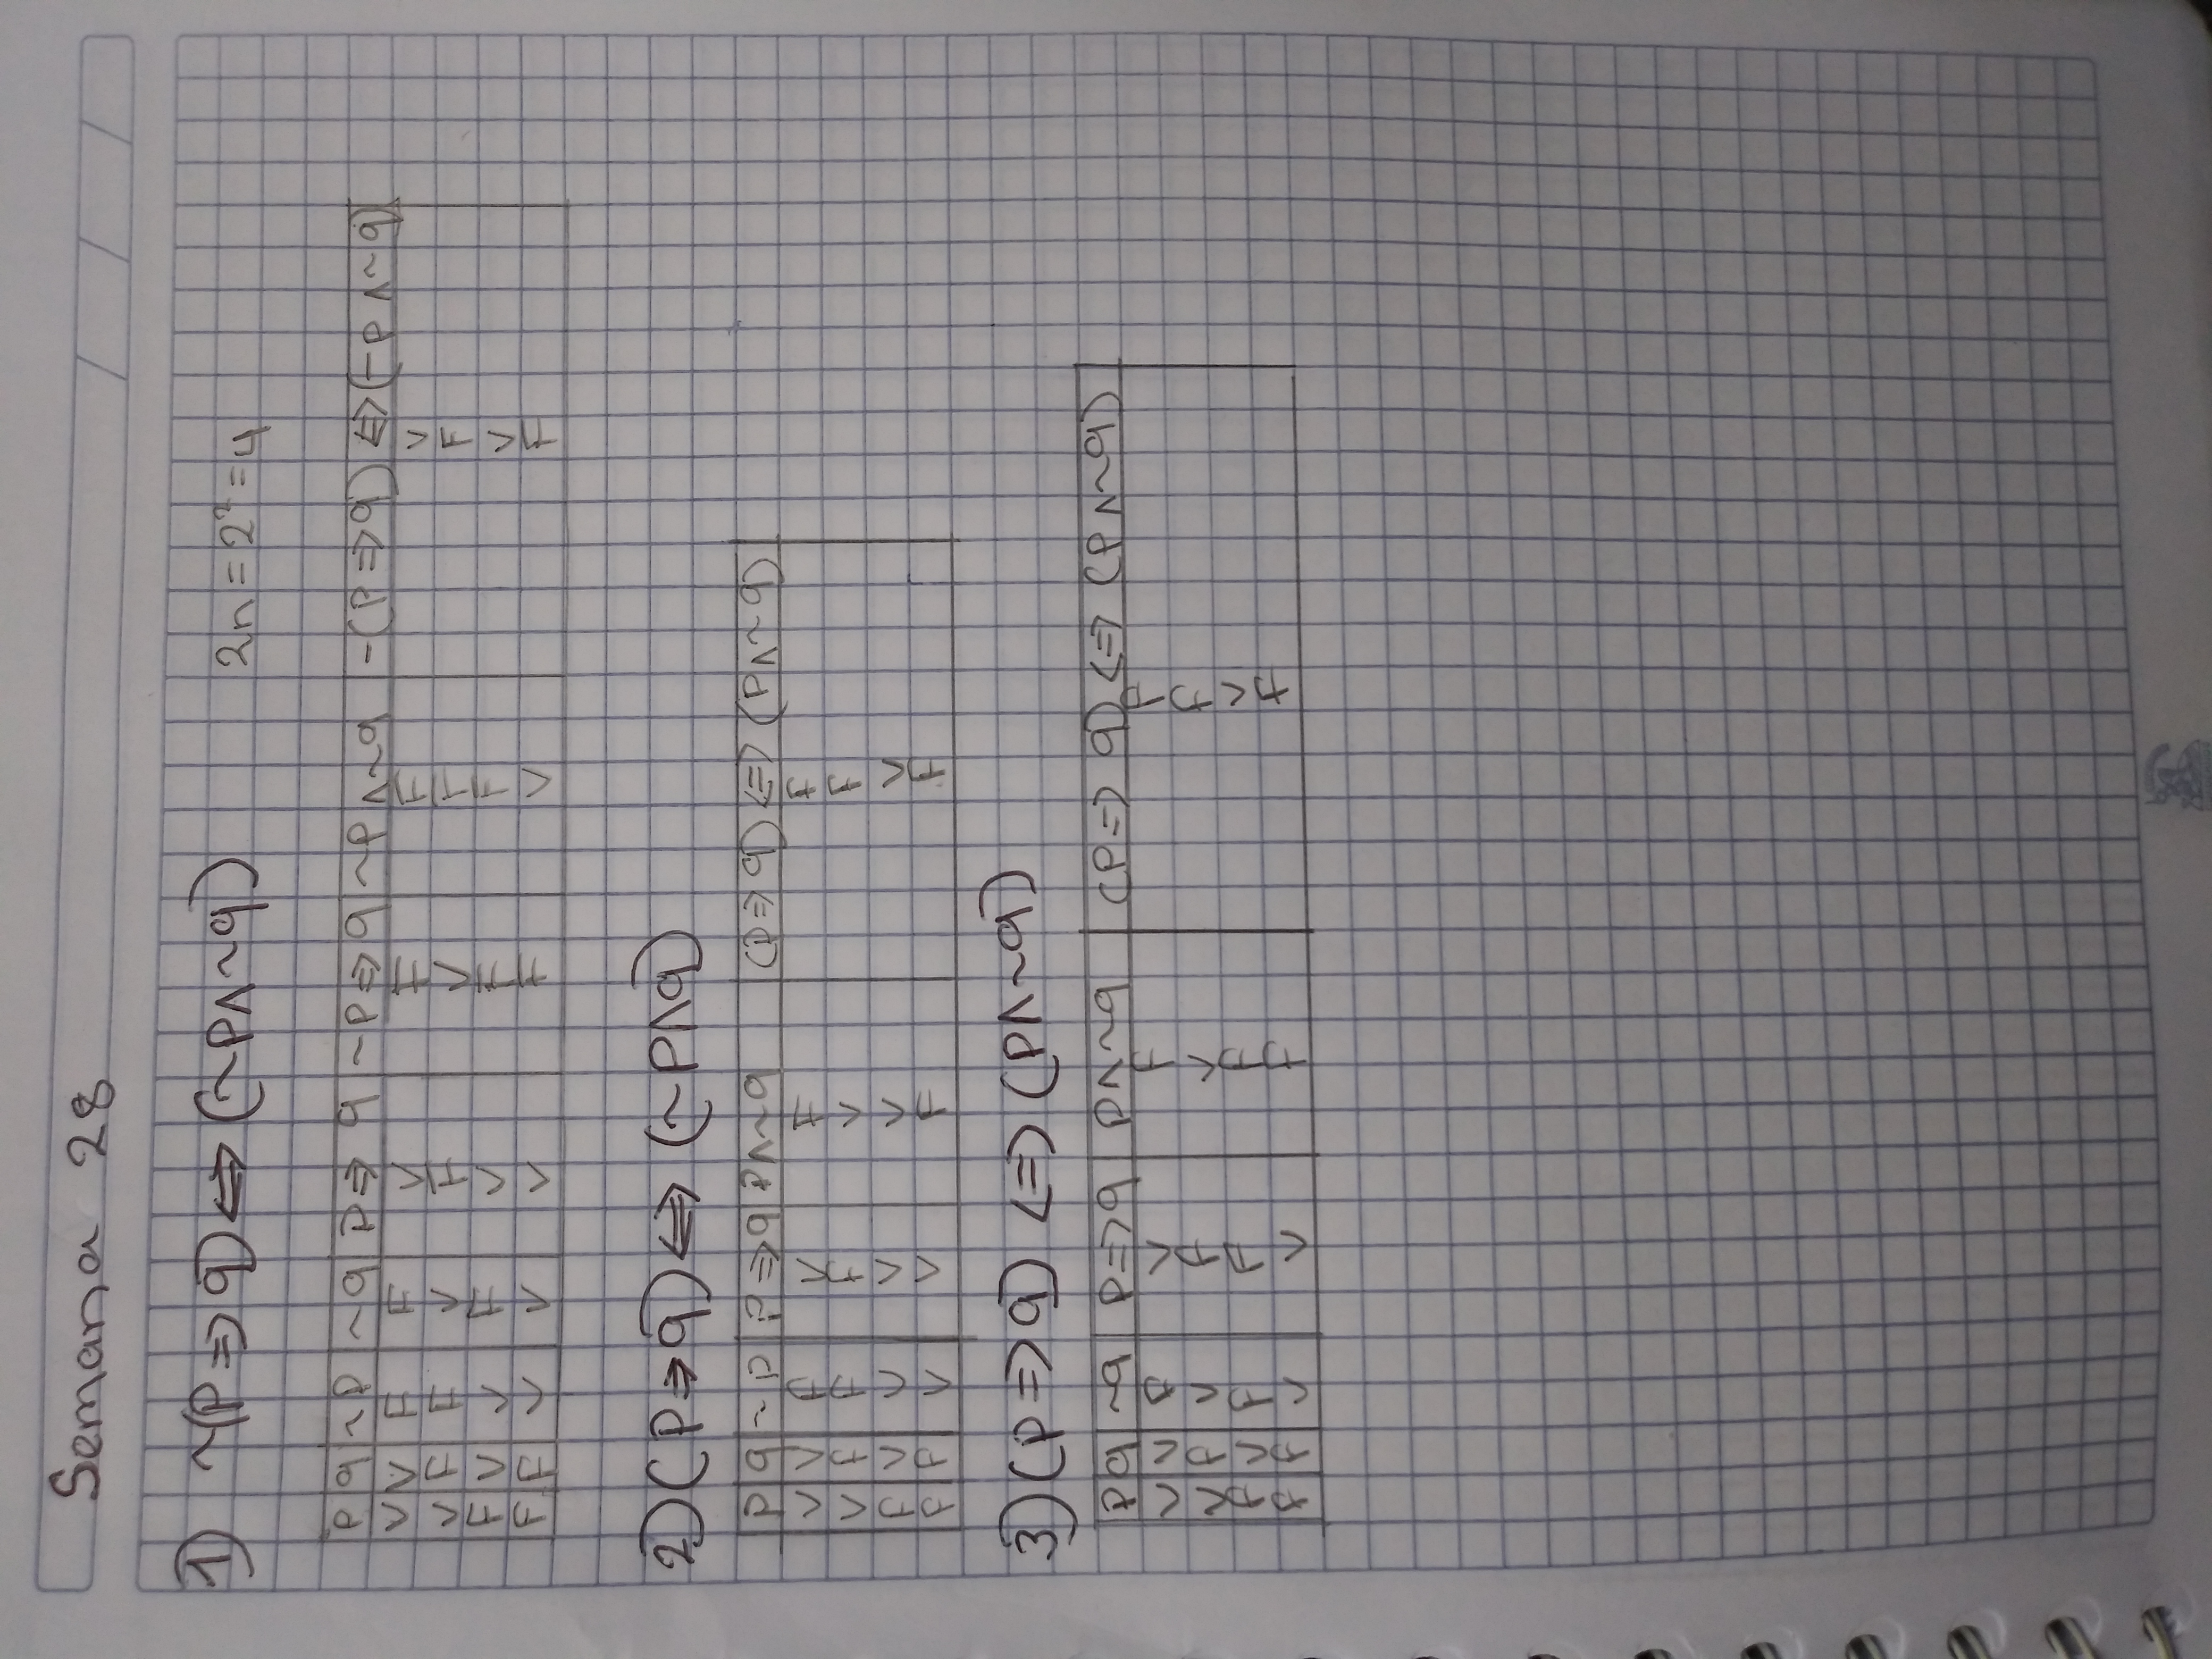 Semana 28
1) ~(p⇒q)⇔(~p∧~q)
2n=2²=4
p q ~p ~q p⇒ q ~p⇒q ~p∧~q -(p⇒q)⇔(-p∧~q)
V V F F V F F V
V F F V F V F F
F V V F V F F V
F F V V V F V F
2)(p⇒q)⇔(~p∧q)
p q ~p p⇒q p∧~q (p⇒q)⇔(p∧~q)
V V F V F F
V F F F V F
F V V V V V
F F V V F F
3)(p⇒q) ⇔ (p∧~q)
p q ~q p⇒q p∧~q (p⇒q)⇔(p∧~q)
V V F V F F
V F V F V F
F V F F F V
F F V V F F